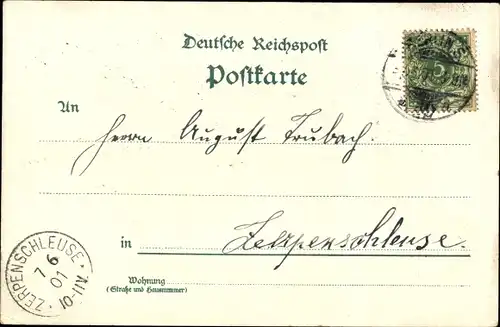 Deutsche Reichspost
Postkarte
An
Herrn August Trubach.
in Zerpenschleuse.
Wohnung
(Straße und Hausnummer)
ZERPENSCHLEUSE
7 6
01
10-11V.
5